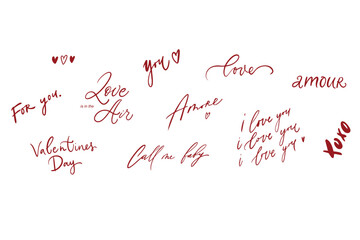 you
love
For you.
Love
is in the
Air
Amore
amour
Valentines
Day
Call me baby
i love you
i love you
i love you
xoxo